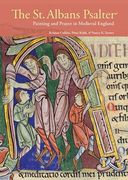 The St. Albans Psalter
Painting and Prayer in Medieval England
Kristen Collins, Peter Kidd, & Nancy K. Turner